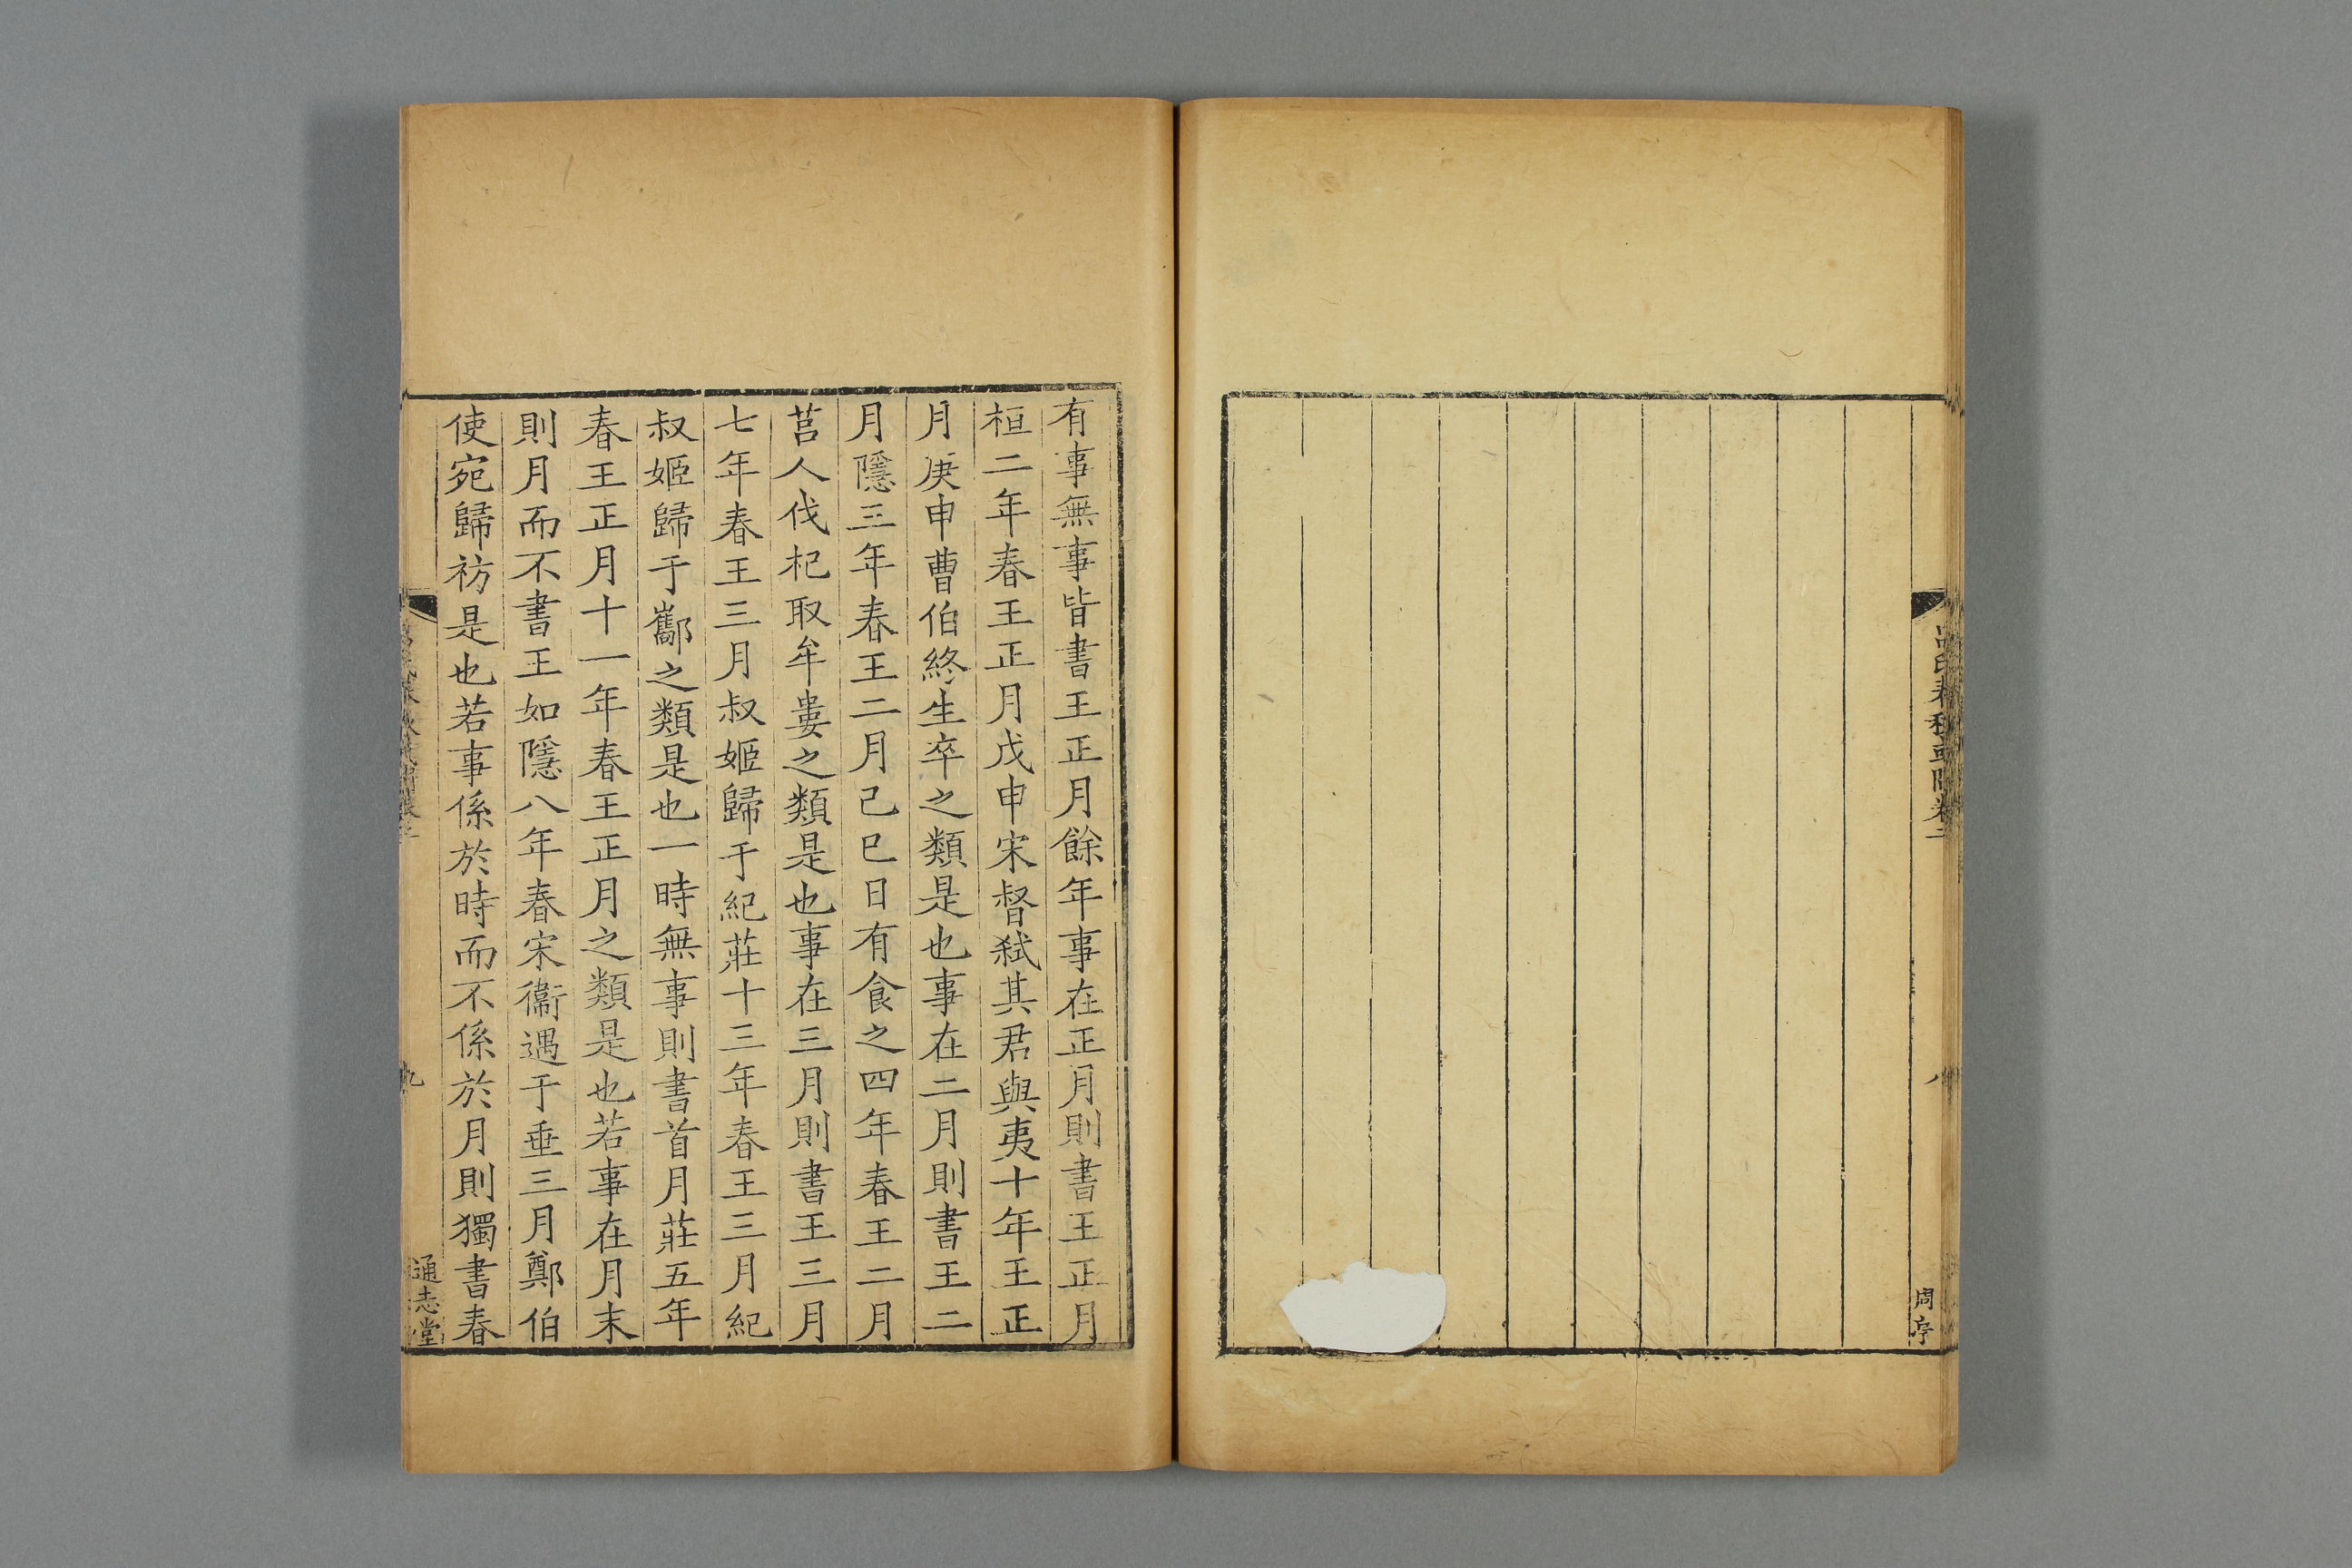 呂氏春秋或問卷二
八
周序
有事無事皆書王正月餘年事在正月則書王正月
桓二年春王正月戊申宋督弑其君與夷十年王正
月庚申曹伯終生卒之類是也事在二月則書王二
月隱三年春王二月己巳日有食之四年春王二月
莒人伐杞取牟婁之類是也事在三月則書王三月
七年春王三月叔姬歸于紀莊十三年春王三月紀
叔姬歸于酅之類是也一時無事則書首月莊五年
春王正月十一年春王正月之類是也若事在月末
則月而不書王如隱八年春宋衞遇于垂三月鄭伯
使宛歸祊是也若事係於時而不係於月則獨書春
九
通志堂